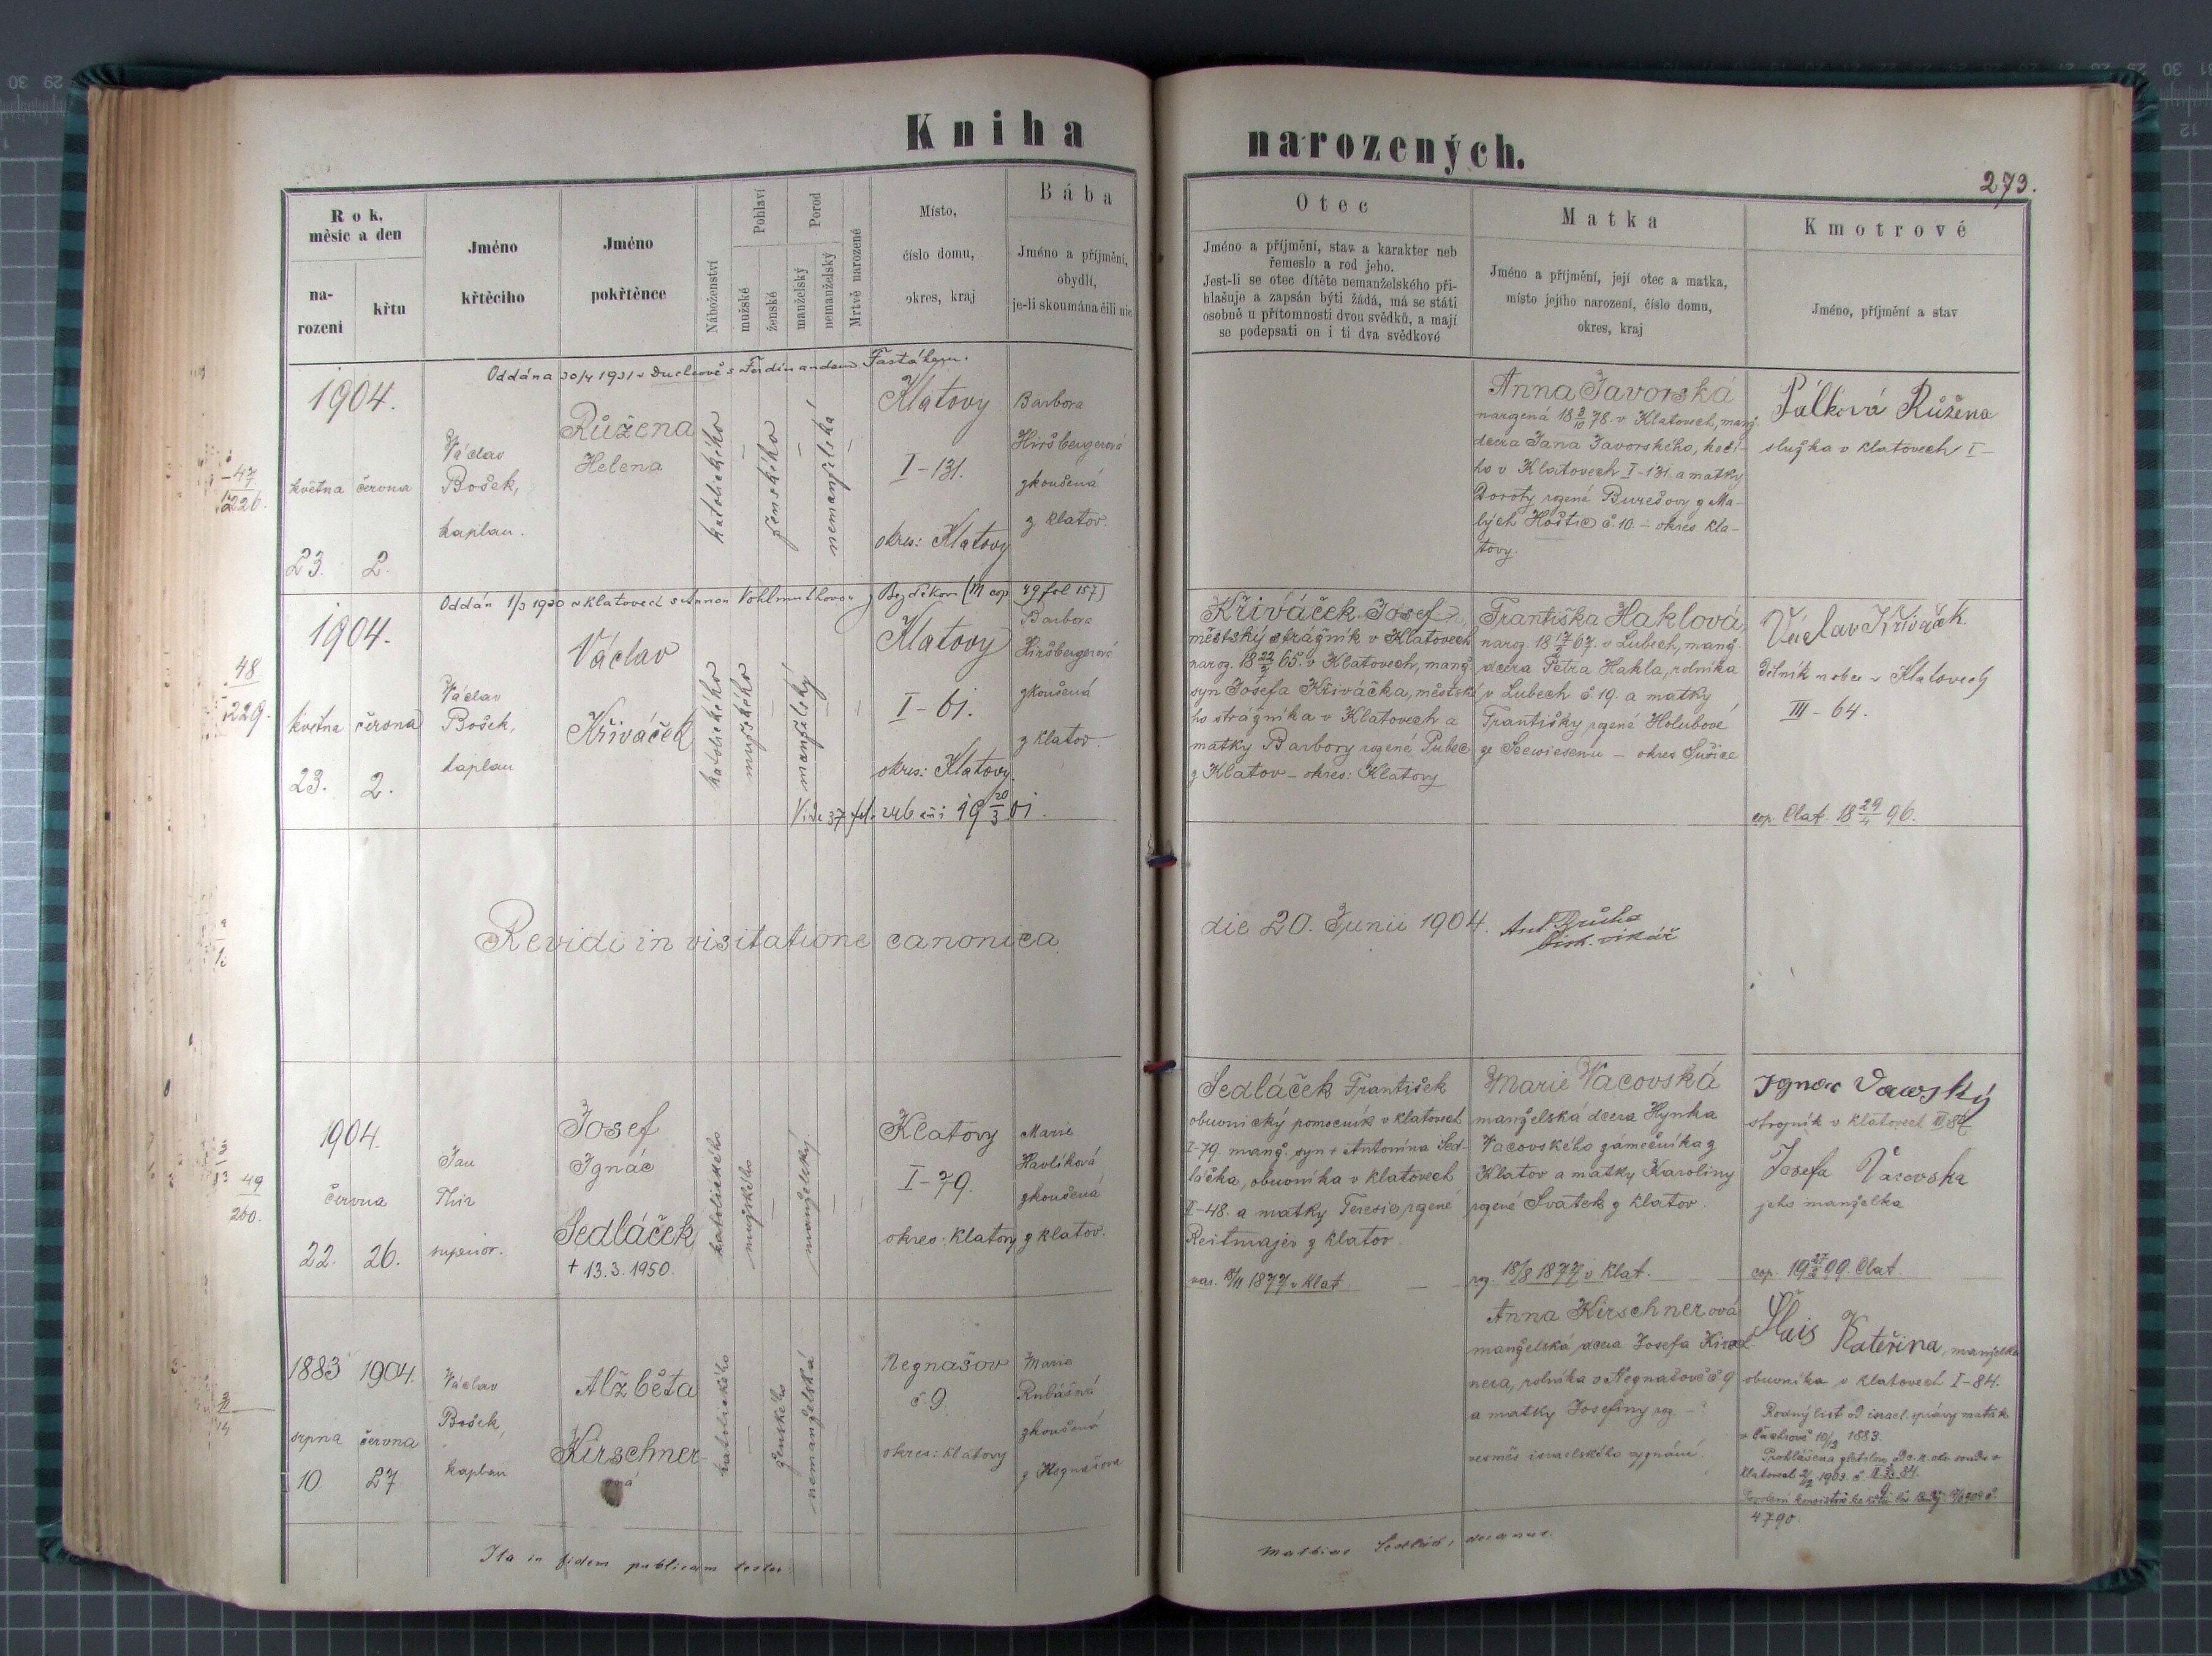 Kniha
narozených.
273.
Rok,
měsíc a den
na-
rození
křtu
Jméno
křtěcího
Jméno
pokřtěnce
Náboženství
Pohlaví
mužské
ženské
Porod
manželský
nemanželský
Mrtvě narozené
Místo,
číslo domu,
okres, kraj
Bába
Jméno a příjmění,
obydlí,
je-li skoumána čili nic
Otec
Jméno a příjmění, stav a karakter neb
řemeslo a rod jeho.
Jest-li se otec dítěte nemanželského při-
hlašuje a zapsán býti žádá, má se státi
osobně u přítomnosti dvou svědků, a mají
se podepsati on i ti dva svědkové
Matka
Jméno a příjmění, její otec a matka,
místo jejího narození, číslo domu,
okres, kraj
Kmotrové
Jméno, příjmění a stav
Oddána 30/4 1931 v Duchcově s Ferdinandem
1904.
47
226.
května
23.
června
2.
Václav
Bošek,
kaplan.
Růžena
Helena
katolického
ženského
nemanželská
Klatovy
I-131.
okres: Klatovy
Barbora
Hiršbergerová
zkoušená
z Klatov.
Anna Javorská
narozená 18 3/10 78. v Klatovech, manž.
dcera Jana Javorského, kočí-
ho v Klatovech I-131. a matky
Doroty rozené Burešovy z Ma-
lých Hoštic č. 10. – okres Kla-
tovy.
Pálková Růžena
služka v Klatovech I-
Oddán 1/3 1930 v Klatovech s Annou Vohlmuthovou z Bezděkova (M cop 49 fol 157)
1904.
48
229.
května
23.
června
2.
Václav
Bošek,
kaplan
Václav
Křiváček
katolického
mužského
manželský
Klatovy
I-61.
okres: Klatovy.
Barbora
Hiršbergerová
zkoušená
z Klatov.
Křiváček Josef,
městský strážník v Klatovech
naroz. 18 22/7 65. v Klatovech, manž.
syn Josefa Křiváčka, městské-
ho strážníka v Klatovech a
matky Barbory rozené Pubec
z Klatov – okres: Klatovy
Františka Haklová
naroz. 18 17/2 67. v Lubech, manž.
dcera Petra Hakla, rolníka
v Lubech č. 19. a matky
Františky rozené Holubové
ze Seewiesenu – okres Sušice
Václav Křiváček.
dělník v Klatovech
III – 64.
Vide 37 fol. 246 19 20/3 01.
cop. Clat. 18 29/4 96.
Revidi in visitatione canonica
die 20. Junii 1904.
Ant. Růha
bisk. vikář
1904.
49
260.
června
22.
26.
Jan
Thir
superior.
Josef
Ignác
Sedláček
+ 13.3.1950.
katolického
mužského
manželský.
Klatovy
I-79.
okres: Klatovy
Marie
Havlíková
zkoušená
z Klatov.
Sedláček František
obuvnický pomocník v Klatovech
I-79. manž. syn + Antonína Sed-
láčka, obuvníka v Klatovech
I-48. a matky Teresie, rozené
Reitmajer z Klatov
1877 v Klat.
Marie Vacovská
manželská dcera Hynka
Vacovského zámečníka z
Klatov a matky Karoliny
rozené Svatek z Klatov.
18/8 1877 v Klat.
Ignác Vacovský
strojník v Klatovech
Josefa Vacovska
jeho manželka
cop. 19 27/2 99. Clat.
1883
srpna
10.
1904.
června
27
Václav
Bošek,
kaplan
Alžběta
Kirschner-
ová
katolického
ženského
nemanželská
Neznašov
č. 9.
okres: Klatovy
Marie
Rubášová
zkoušená
z Neznašova
Anna Kirschnerová
manželská dcera Josefa Kirsch-
nera, rolníka v Neznašově č 9
a matky Josefiny roz. – ?
vesměs israelského vyznání.
Šlais Kateřina, manželka
obuvníka v Klatovech I-84.
Rodný list od israel. správy matrik
v 10/12 1883.
Prohlášena zletilou od c.k. okr. soudu v
Klatovech 1903. č.
4790.
Ita in fidem publicam testor:
Mathias decanus.